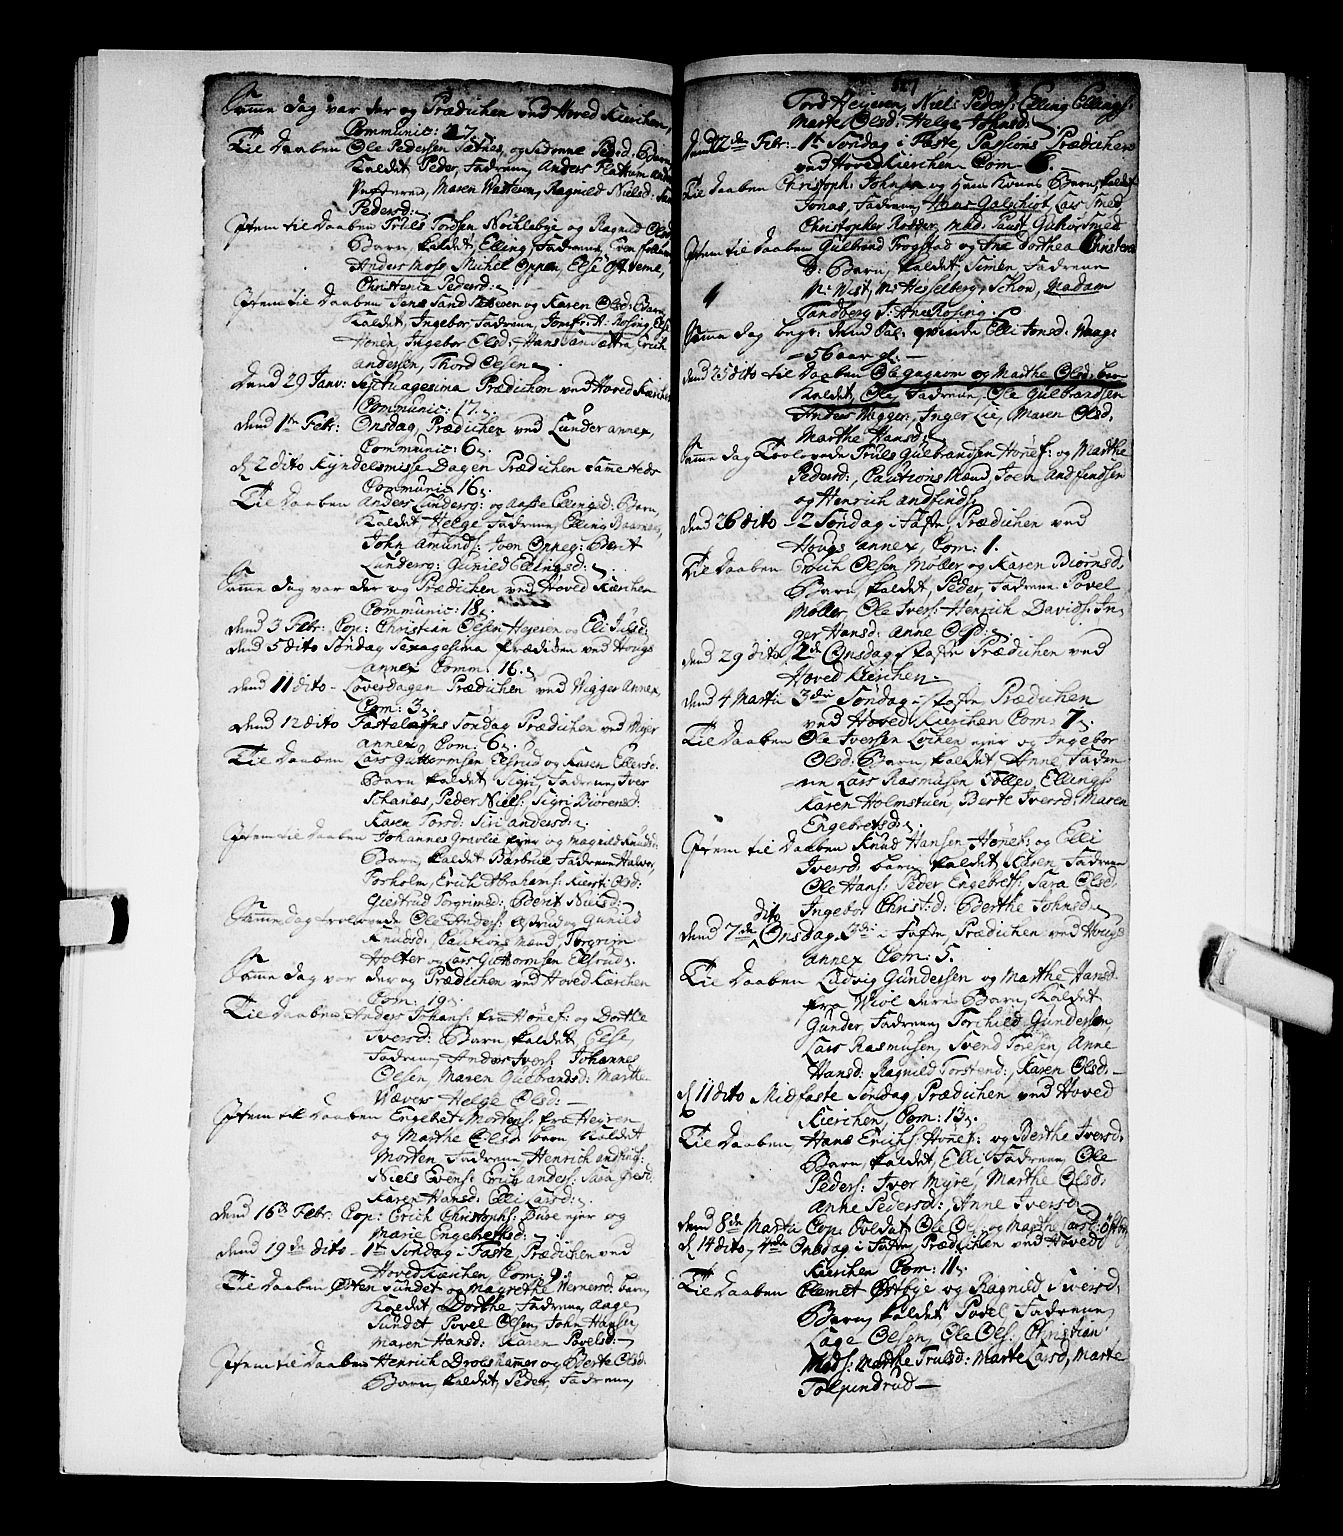 Samme dag var der og Prædichen ved Hoved Kierchen,
Communic: 27.
Til Daaben Ole Pedersen Sætnes, og Sidonne Peders: Barn
Kaldet Peder, Fadrene, Anders Plattum
Maren Hattevn, Ragnild Nielsd:
Pedersd:
Item til Daaben Truls Tordsen Nøchlebye og Ragnild Olsd
Barn, kaldet, Elling, Fadrene, Even
Anders Moss, Michel Oppen, Else
Christence Pedersd:
Item til Daaben Jens Sand Heyeren og Karen Olsd: Barn
Kaldet, Ingebor Fadrene, Jomfr: A: Rosing, Else
Hønen, Ingebor Olsd: Hans Erich
Andersen, Thord Olesen
Dend 29 Janv: Prædichen ved Hoved Kierchen
Communic: 17.
dend 1te Febr: Onsdag, Prædichen ved Lunder annex,
Communic: 6.
d. 2 dito Kyndelsmisse Dagen Prædichen samme steds
Communic: 16.
Til Daaben Anders Lunderg: og Aasse Ellingsd: Barn,
Kaldet Helge Fadrene, Elling
John Amunds: Iven Oppeg: Berit
Lunderg: Gunild Ellingsd:
Samme dag var der og Prædichen ved Hoved Kierchen
Communic: 18.
dend 3 Febr: Cop: Christian Olsen Heyeren og Eli Julsd:
dend 5 dito Søndag Sexagesima Prædichen ved Hougs
annex Comm: 16.
dend 11 dito - Løverdagen Prædichen ved Vigger Annex,
Com: 3.
dend 12 dito Fastelafns Søndag Prædichen ved
annex, Com: 6.
Til Daaben Lars Guttormsen Elsrud og Karen Ellersd:
Barn kaldet, Sigri, Fadrene, Iver
Schanes, Peder Niels: Sigri Biørensd:
Karen Torsd: Siri Andersd:
Item til Daaben Johannes Gravlie ejer og Magnild Knudsd:
Barn, kaldet Barbrue Fadrene Halvor
Torholm, Erich Abrahams: Kierst: Olsd:
Giertrud Torgrimsd: Berit Nilsd:
Samme dag trolovede Ole Anders: Elsrud og Gunild
Knudsd: Cautions Mænd, Torgrim
Holter og Lars Guttormsen Elsrud.
Samme dag var der og Prædichen ved Hoved Kierchen
Com: 19.
Til Daaben Anders Johans: fra Hønef: og Dorthe
Iversd: Barn, kaldet, Else,
Fadrene, Anders Ivers: Johannes
Olsen, Maren Gulbrandsd: Marthe
Wæver Helge Olsd:
Item til Daaben Engebet Mortens: fra Heyren
og Marthe Olsd barn kaldet
Morten, Fadrene Henrich
Niels Evens: Erich Anders: Sara
Karen Hansd: Elli Larsd:
dend 16de Febr: Cop: Erich Christophs: Buse ejer og
Marie Engebethsd:
dend 19de dito - 1te Søndag i Faste, Prædichen ved
Hoved Kierchen Com: 9.
Til Daaben Østen Sundet og Magrethe Wernersd: barn
Kaldet, Dorthe, Fadrene, Aage
Sundet Povel Olsen, John Hansen,
Maren Hansd: Karen Povelsd:
Item til Daaben Henrich Drolshamer og Berte Olsd.
Barn, kaldet, Peder, Fadrene,
Tord Heyeren, Niels Peders: Elling Ellings:
Marte Olsd: Helge Johnsd:
dend 22de Febr: 1te Søndag i Faste, Passions Prædichen
ved Hoved Kierchen Com 6.
Til Daaben Christoph: Johnsen og Hans Kones Barn, kaldet
Jonas, Fadrene, Hans Galschiot, Lars Smed
Christopher Rodder, Mad:
Item til Daaben Gulbrand Frogstad og Ane Dorthea Christens
D: Barn, kaldet, Simen, Fadrene
Mr: West, Mr: Hesselberg, Schou, Madam
Tandberg J: Ane Rosing.
Samme dag begr: Elli Jonsd: Haag:
56 aar gl:
dend 25 dito til Daaben Ole Gagnom og Marthe Olsd: barn
Kaldet, Ole, Fadrene, Ole Gulbrandsen
Anders Vegger, Inger Lie, Maren Olsd,
Marthe Hansd:
Samme dag Trolovede Truls Gulbrandsen Hønef: og Marthe
Pedersd: Cautions Mænd, Joen Andfindsen
og Henrich Andfinds:
dend 26 dito - 2 Søndag i Faste, Prædichen ved
Hougs annex, Com: 1.
Til Daaben Erich Olsen Møller og Karen Biørnsd,
Barn, kaldet, Peder, Fadrene Povel
Møller, Ole Ivers: Henrich Davids: In
ger Hansd: Anne Olsd.
dend 29 dito 2de Onsdag i Faste Prædichen ved
Hoved Kierchen.
dend 4 Martii 3die Søndag i Faste, Prædichen
ved Hoved Kierchen Com: 7.
Til Daaben Ole Iversen Lochen ejer og Ingebor
Olsd: Barn kaldet Anne Fadre
ne Lars Rasmusen Tollev, Ellings:
Karen Holmstuen, Berte Iversd: Maren
Engebretsd:
Item til Daaben Knud Hansen Hønef: og Elli
Iversd: barn, kaldet, Karen Fadrene
Ole Hans: Peder Engebrets: Sara Olsd:
Ingebor Christ:d: Berthe Johnsd:
dend 7de dito Onsdag 3die i Faste, Prædichen ved Hougs
annex Com: 5.
Til Daaben Ludvig Gundersen og Marthe Hansd:
fra Wiol deres Barn, kaldet
Gunder, Fadrene, Torchild Gundersen
Lars Rasmusen, Svend Toresen, Anne
Hansd: Ragnild Torstend:, Karen Olsd:
d. 11 dito Midfaste Søndag Prædichen ved Hoved
Kierchen, Com: 13.
Til Daaben, Hans Erichs: Hønef: og Berthe Iversd:
Barn, kaldet, Elli Fadrene, Ole
Peders: Iver Myre, Marthe Olsd:
Anne Pedersd: Anne Iversd
dend 8de Martii Cop: Soldat Ole Ols: og Marthe Larsd:
d. 14 dito, 4de Onsdag i Faste, Prædichen ved Hoved
Kierchen Com: 11.
Til Daaben Clemet Østbye og Ragnild Siversd.
Barn, kaldet Povel, Fadrene,
Lage Olsen, Ole Ols: Christian
Mads: Marthe Trulsd: Marte Larsd, Marte
Tolpindrud